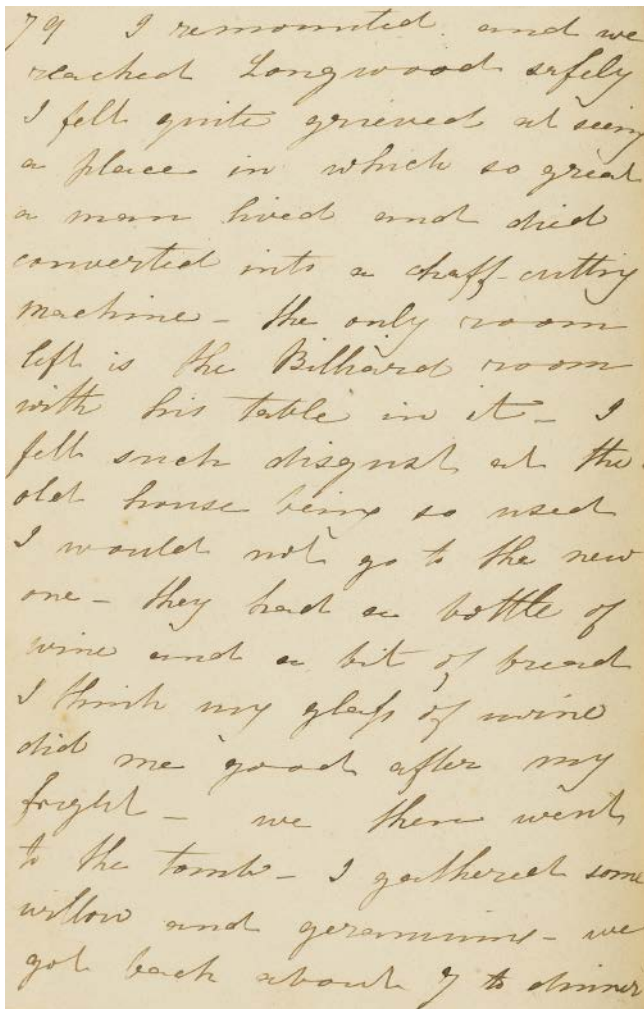 79 I remounted and we
reached Longwood safely
I felt quite grieved at seeing
a place in which so great
a man lived and died
converted into a chaff-cutting
machine - the only room
left is the Billiard room
with his table in it - I
felt such disgust at the
old house being so used
I would not go to the new
one - they had a bottle of
wine and a bit of bread
I think my glass of wine
did me good after my
fright - we then went
to the tomb - I gathered some
willow and geraniums - we
got back about 7 to dinner